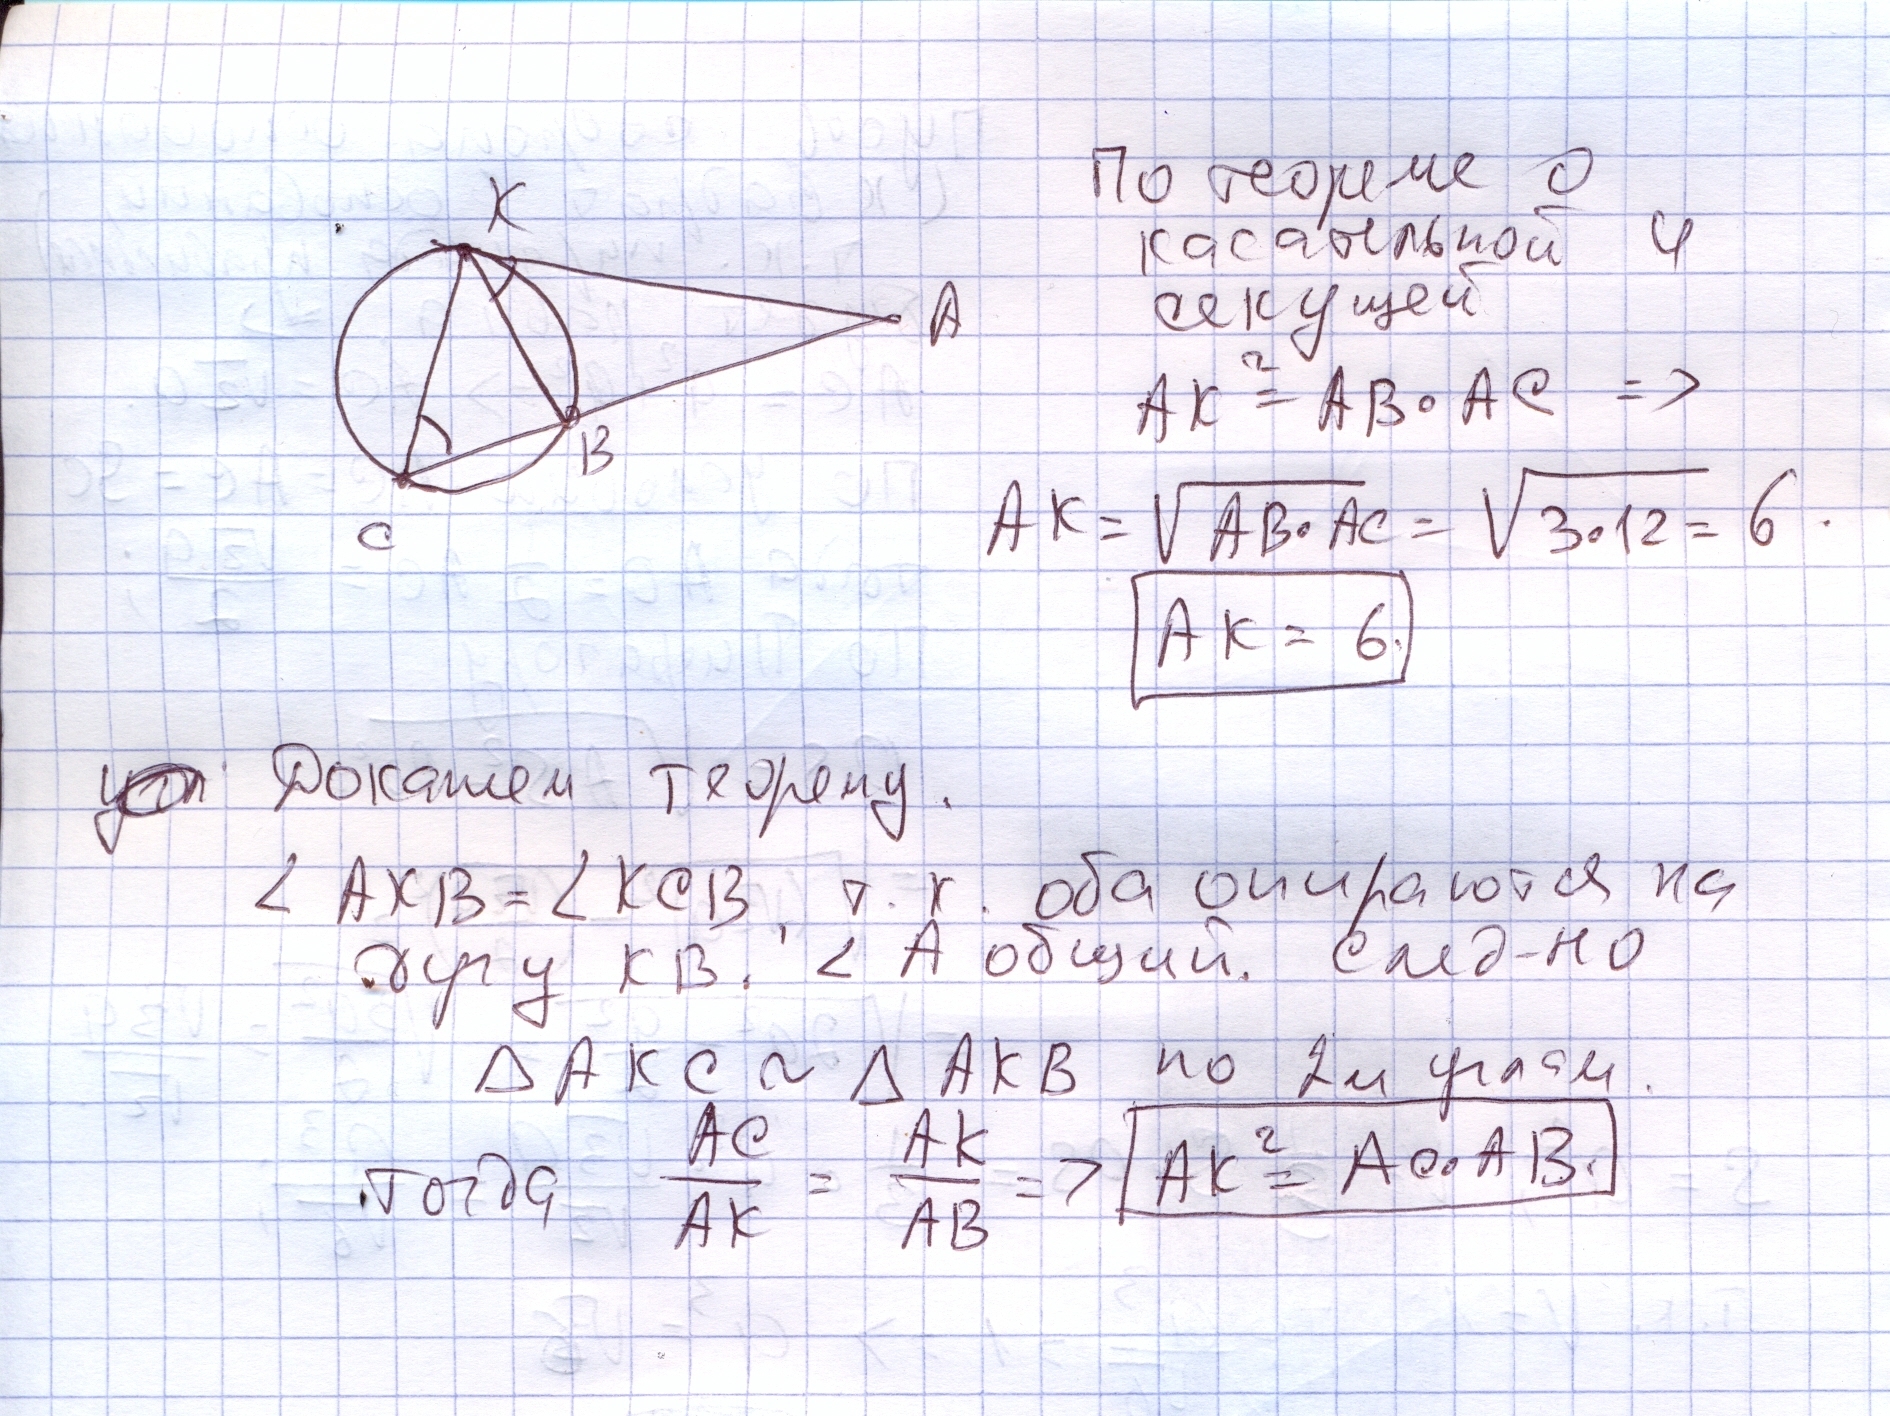 K
A
B
C
По теореме о
касательной и
секущей
AK² = AB · AC =>
AK = √AB·AC = √3·12 = 6.
AK = 6.
Докажем теорему.
∠ AKB = ∠ KCB, т.к. оба опираются на
дугу KB. ∠ A общий. След-но
Δ AKC ~ Δ AKB по 2м углам.
Тогда AC/AK = AK/AB => AK² = AC·AB.